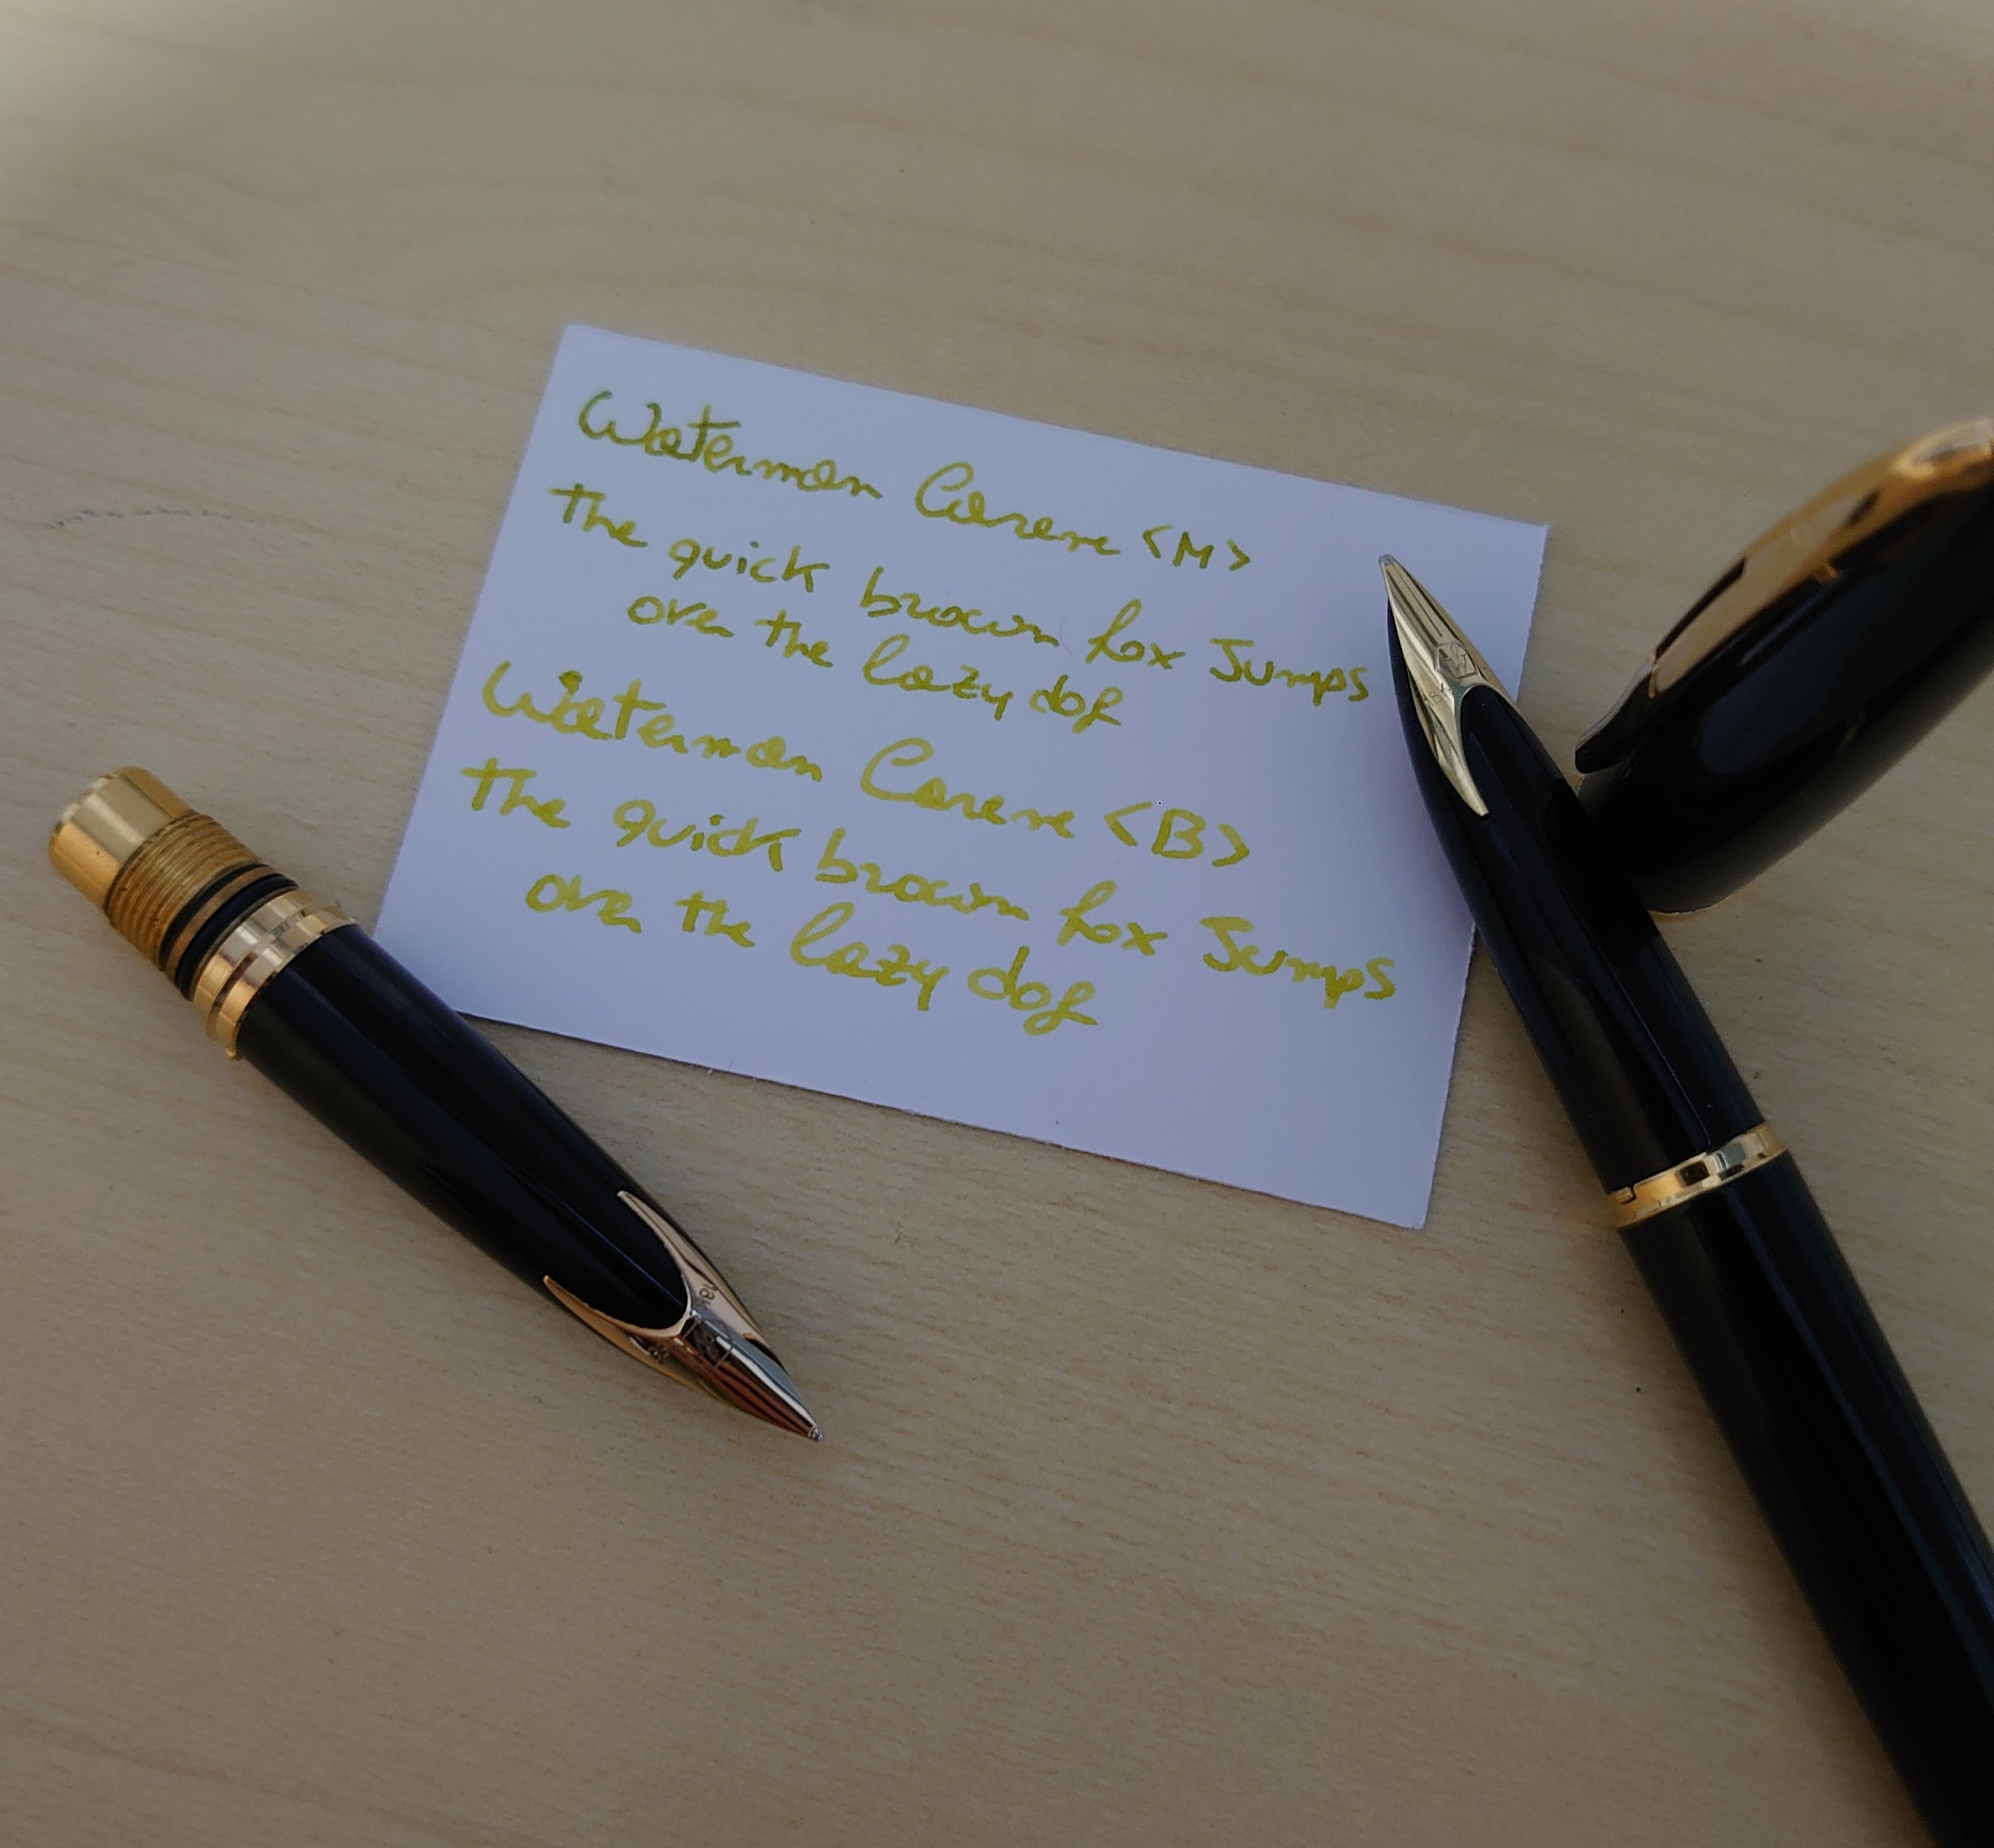 Waterman Carene <M>
The quick brown fox Jumps
over the lazy dog
Waterman Carene <B>
The quick brown fox Jumps
over the lazy dog
18k